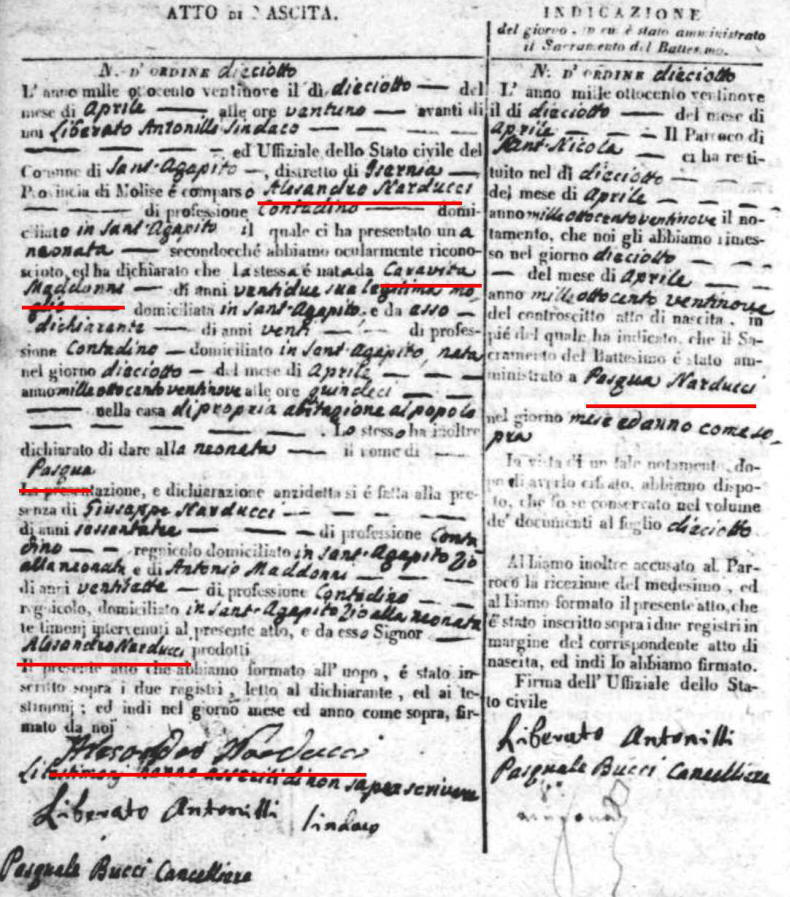 ATTO DI NASCITA.
N. D' ORDINE dieciotto
L' anno mille ottocento ventinove il dì dieciotto — del
mese di Aprile — alle ore ventuno — avanti di
noi Liberato Antonilli Sindaco — — — —
— — — — ed Uffiziale dello Stato civile del
Comune di Sant-Agapito —, distretto di Isernia —
Provincia di Molise é comparso Alesandro Narducci
— — — di professione Contadino — — domi-
ciliato in Sant-Agapito il quale ci ha presentato una
neonata — secondocchè abbiamo ocularmente ricono-
sciuto, ed ha dichiarato che la stessa é nata da Caravita
Maddonni — di anni ventidue sua legitima mo
glie — domiciliata in Sant-Agapito. e da asso —
dichiarante — di anni venti — — di profes-
sione Contadino — domiciliato in Sant-Agapito, nata
nel giorno dieciotto — del mese di Aprile — —
anno mille ottocento ventinove alle ore quindeci — —
— — nella casa di propria abitagione al popolo
— — — — — . Lo stesso ha inoltre
dichiarato di dare alla neonata — il nome di —
Pasqua
La presentazione, e dichiarazione anzidetta si é fatta alla pre-
senza di Giuseppe Narducci — — — —
di anni sassantatre — — — di professione Conta
dino — —, regnicolo domiciliato in Sant-Agapito Zio
alla neonata e di Antonio Maddonni — — —
di anni ventisatte — di professione Contadino — —
regnicolo, domiciliato in Sant-Agapito Zio alla neonata
testimonj intervenuti al presente atto, e da esso Signor —
Alesandro Narducci prodotti
Il presente atto che abbiamo formato all' uopo, é stato in-
scritto sopra i due registri, letto al dichiarante, ed ai te-
stimonj; ed indi nel giorno mese ed anno come sopra, fir-
mato da noi
Alesandro Narducci
Li testimonj hanno asseriti di non saper scrivere
Liberato Antonilli Sindaco
Pasquale Bucci Cancelliere
INDICAZIONE
del giorno, in cui è stato amministrato
il Sacramento del Battesimo.
N. D' ORDINE dieciotto
L' anno mille ottocento ventinove
il di dieciotto — del mese di
Aprile — — — Il Parroco di
Sant-Nicola —
— ci ha resti-
tuito nel dì dieciotto — —
del mese di Aprile — — —
anno mille ottocento ventinove il no-
tamento, che noi gli abbiamo rimes-
so nel giorno dieciotto — —
— del mese di Aprile — —
anno mille ottocento ventinove
del controscitto atto di nascita, in
pié del quale ha indicato, che il Sa-
cramento del Battesimo é stato am-
ministrato a Pasqua Narducci
nel giorno mese ed anno come so
pra
In vista di un tale notamento, do-
po di averlo cifrato, abbiamo dispo-
to, che fosse conservato nel volume
de' documenti al foglio dieciotto
Abbiamo inoltre accusato al Par-
roco la ricezione del medesimo, ed
abbiamo formato il presente atto, che
é stato inscritto sopra i due registri in
margine del corrispondente atto di
nascita, ed indi lo abbiamo firmato.
Firma dell' Uffiziale dello Sta-
to civile
Liberato Antonilli
Pasquale Bucci Cancelliere